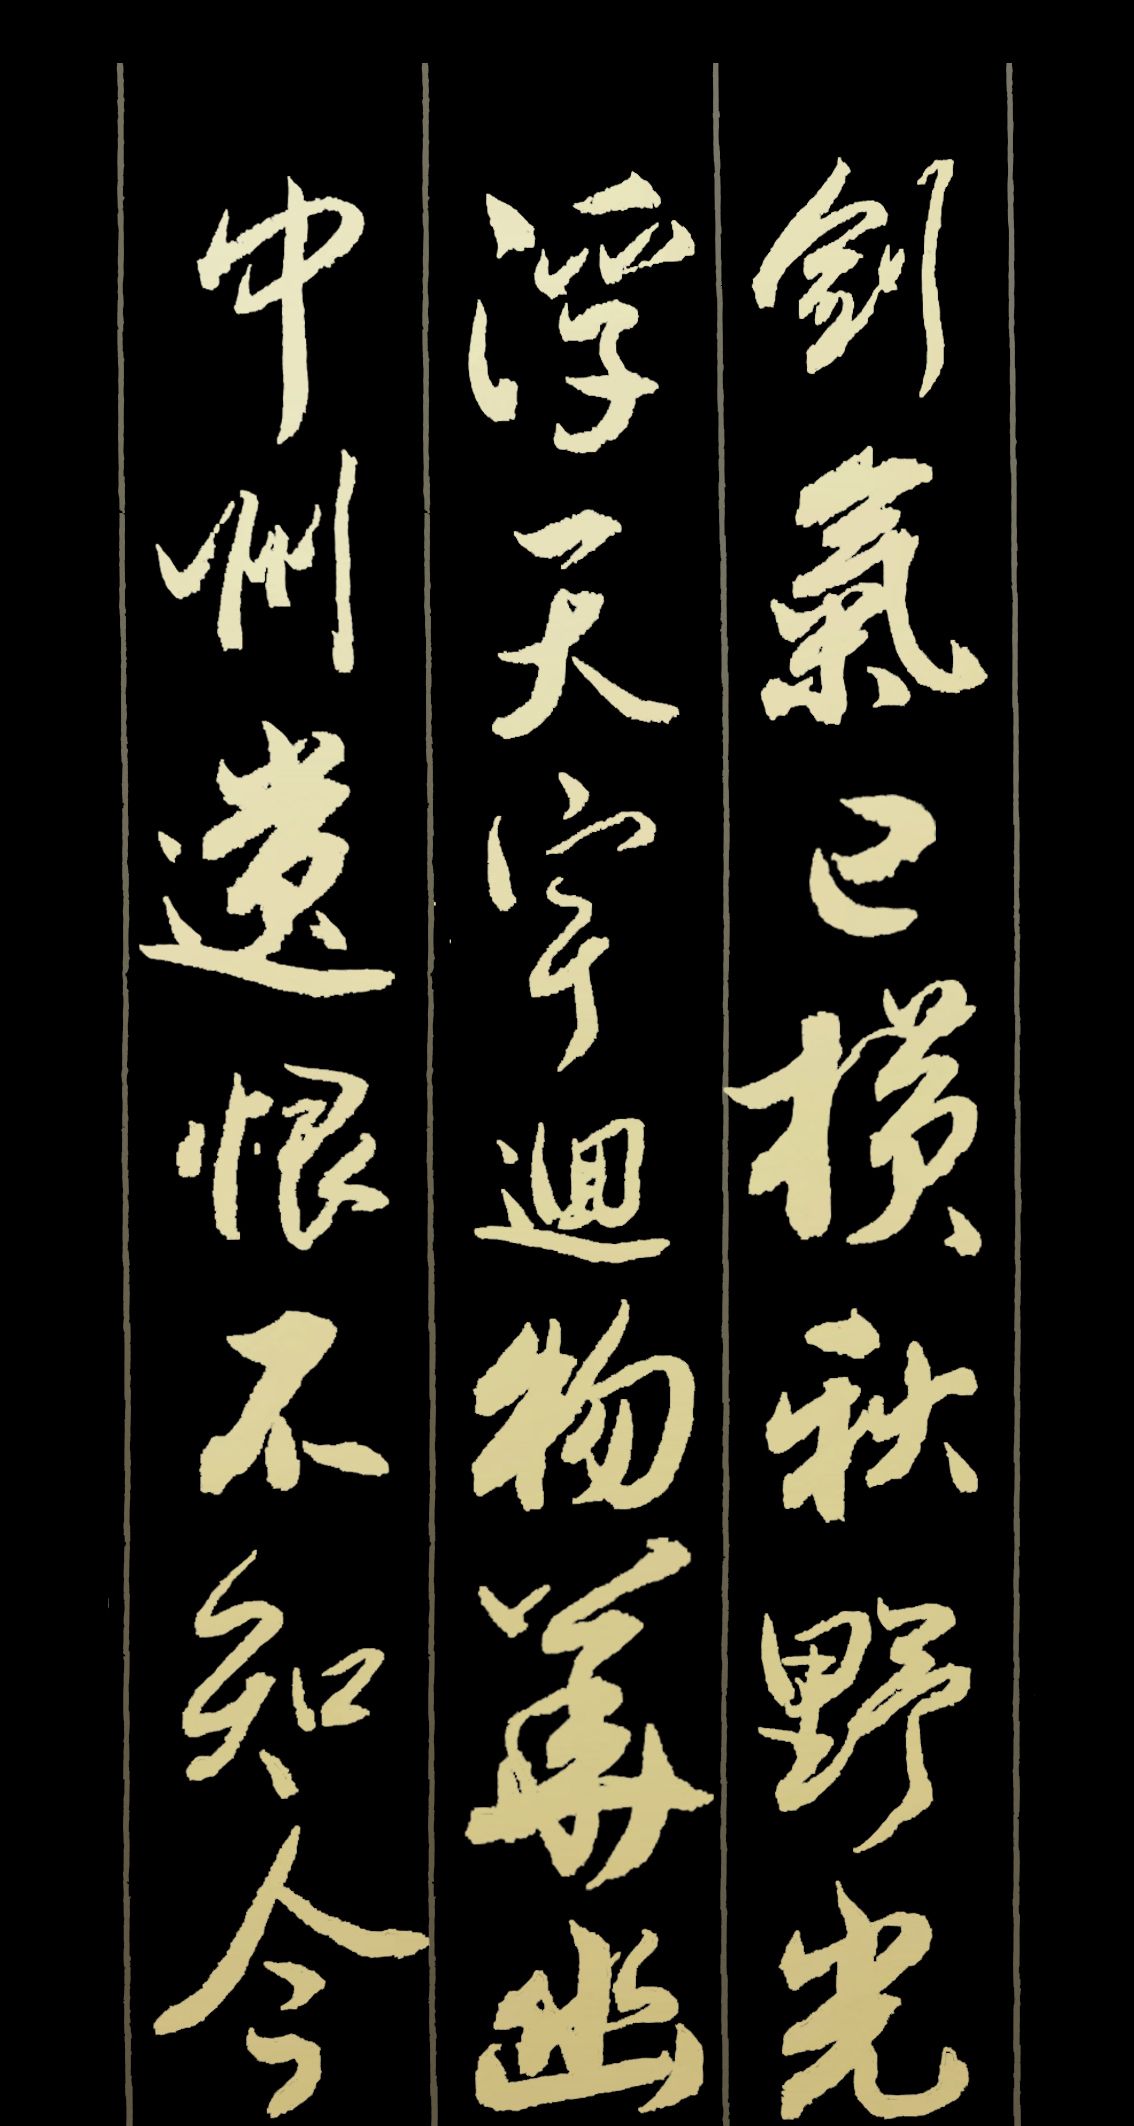 劍氣已橫秋野光
浮天宇迴物華幽
中州遺恨不知今